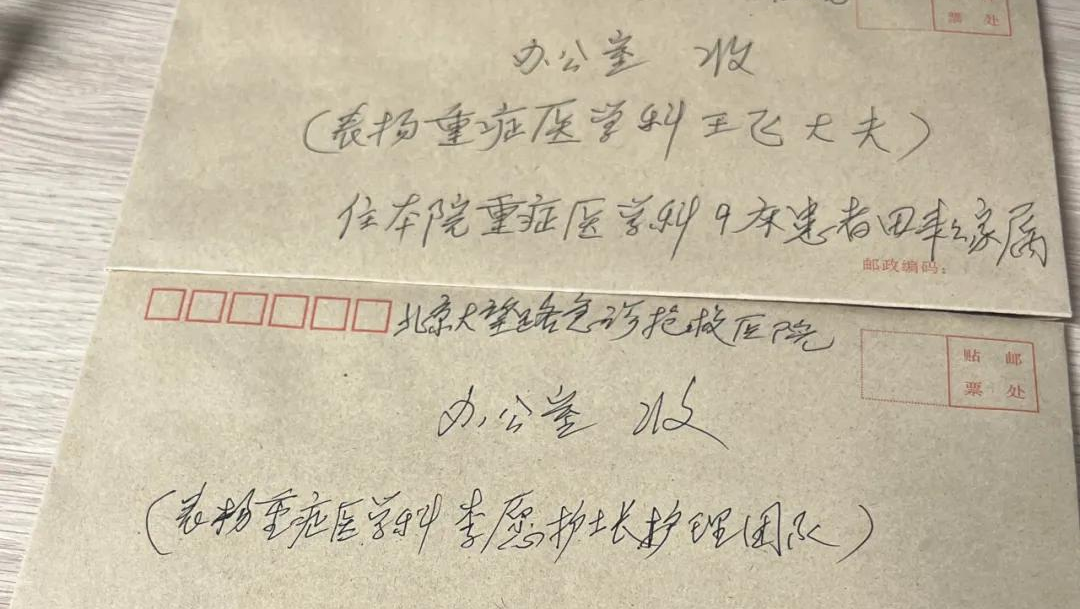 票 处
办公室 收
(表扬重症医学科王飞大夫)
住本院重症医学科9床患者田耘家属
邮政编码:
北京大望路急诊抢救医院
贴 邮
票 处
办公室 收
(表扬重症医学科李愿护士长护理团队)